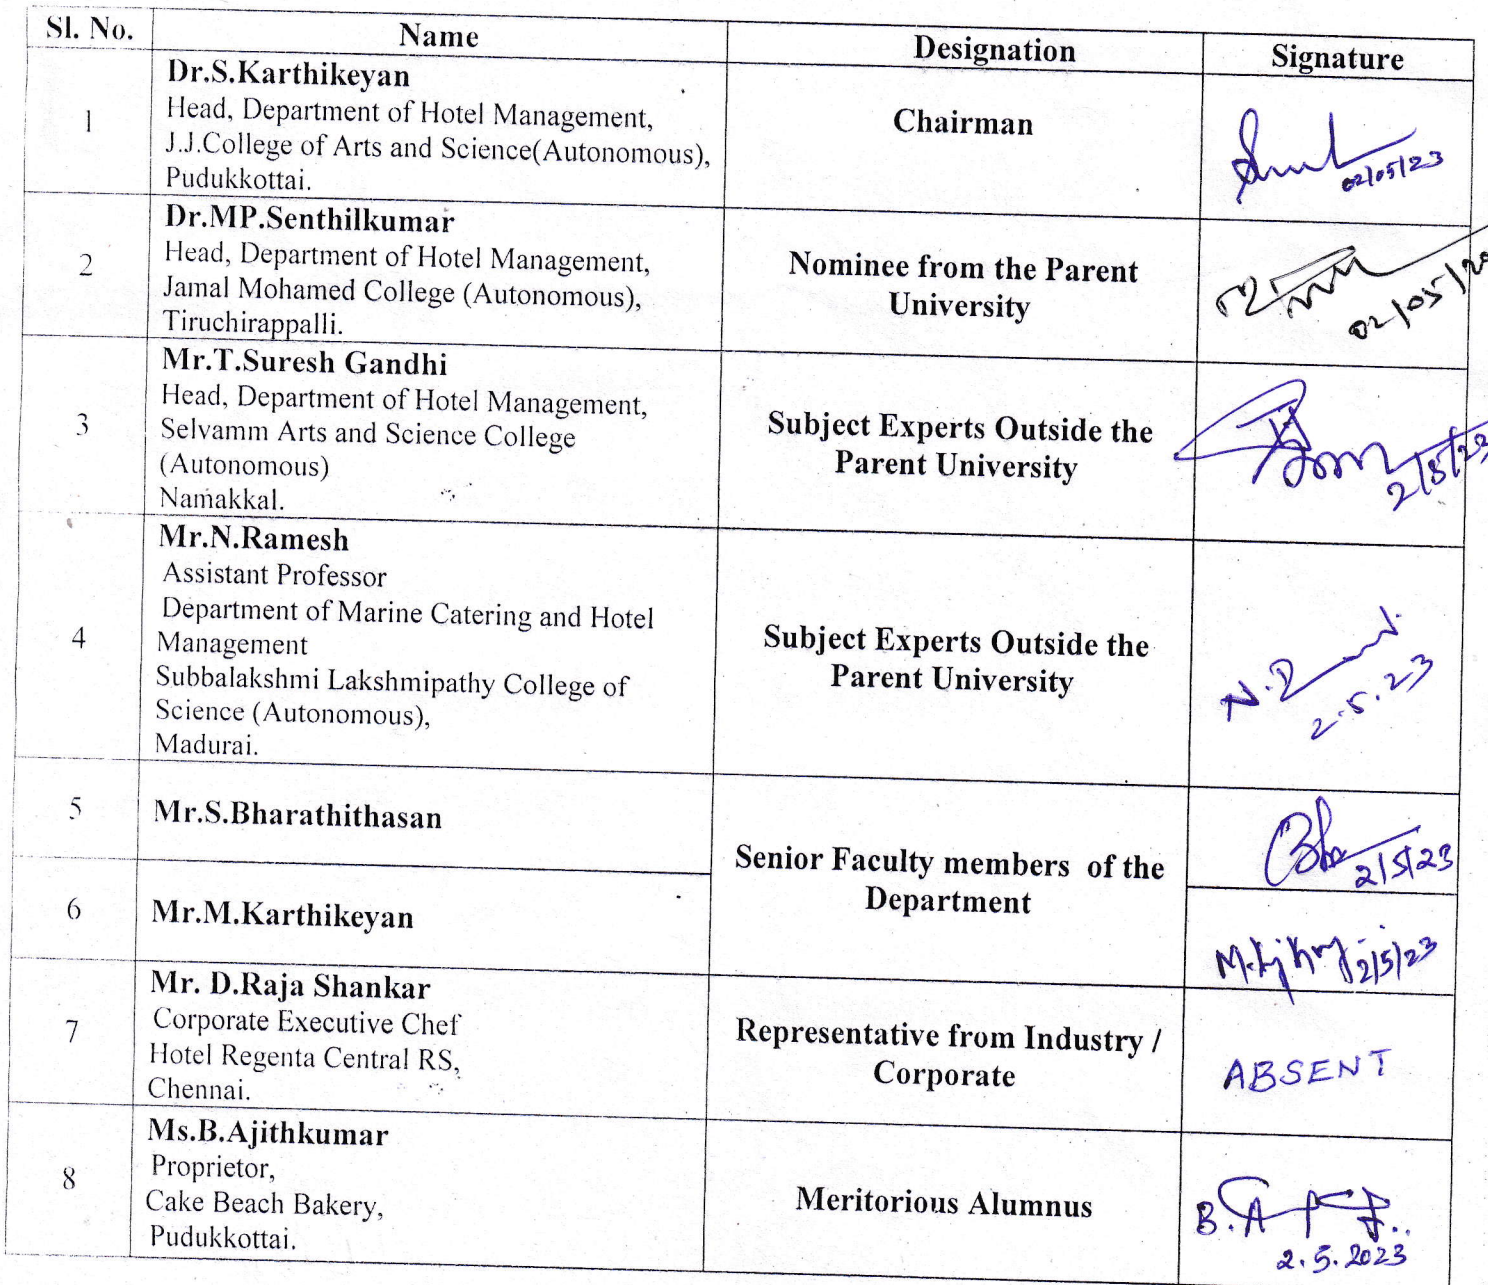 Sl. No. Name Designation Signature
1
Dr.S.Karthikeyan
Head, Department of Hotel Management,
J.J.College of Arts and Science(Autonomous),
Pudukkottai.
Chairman
02/05/23
2
Dr.MP.Senthilkumar
Head, Department of Hotel Management,
Jamal Mohamed College (Autonomous),
Tiruchirappalli.
Nominee from the Parent
University
02/05/20
3
Mr.T.Suresh Gandhi
Head, Department of Hotel Management,
Selvamm Arts and Science College
(Autonomous)
Namakkal.
Subject Experts Outside the
Parent University
2/5/23
4
Mr.N.Ramesh
Assistant Professor
Department of Marine Catering and Hotel
Management
Subbalakshmi Lakshmipathy College of
Science (Autonomous),
Madurai.
Subject Experts Outside the
Parent University
2.5.23
5
Mr.S.Bharathithasan
Senior Faculty members of the
Department
2/5/23
6
Mr.M.Karthikeyan
2/5/23
7
Mr. D.Raja Shankar
Corporate Executive Chef
Hotel Regenta Central RS,
Chennai.
Representative from Industry /
Corporate
ABSENT
8
Ms.B.Ajithkumar
Proprietor,
Cake Beach Bakery,
Pudukkottai.
Meritorious Alumnus
2.5.2023